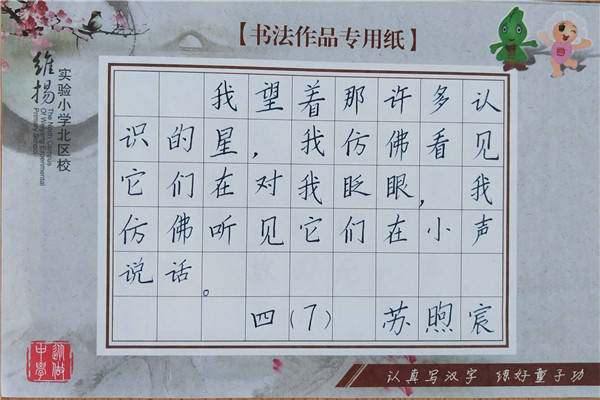 【书法作品专用纸】
维扬
实验小学北区校
The North Campus
Of Weiyang Experimental
Primary School
我望着那许多认
识的星，我仿佛看见
它们在对我眨眼，我
仿佛听见它们在小声
说话。
四(7) 苏煦宸
认真写汉字 练好童子功